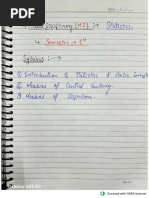 Multi Disciplinary (MD) :→ Statistics
→ Semester - 1st
Syllabus :-→
① Introduction to Statistics & Basic Concepts
② Measures of Central Tendency
③ Measures of Dispersion.
Scanned with OKEN Scanner